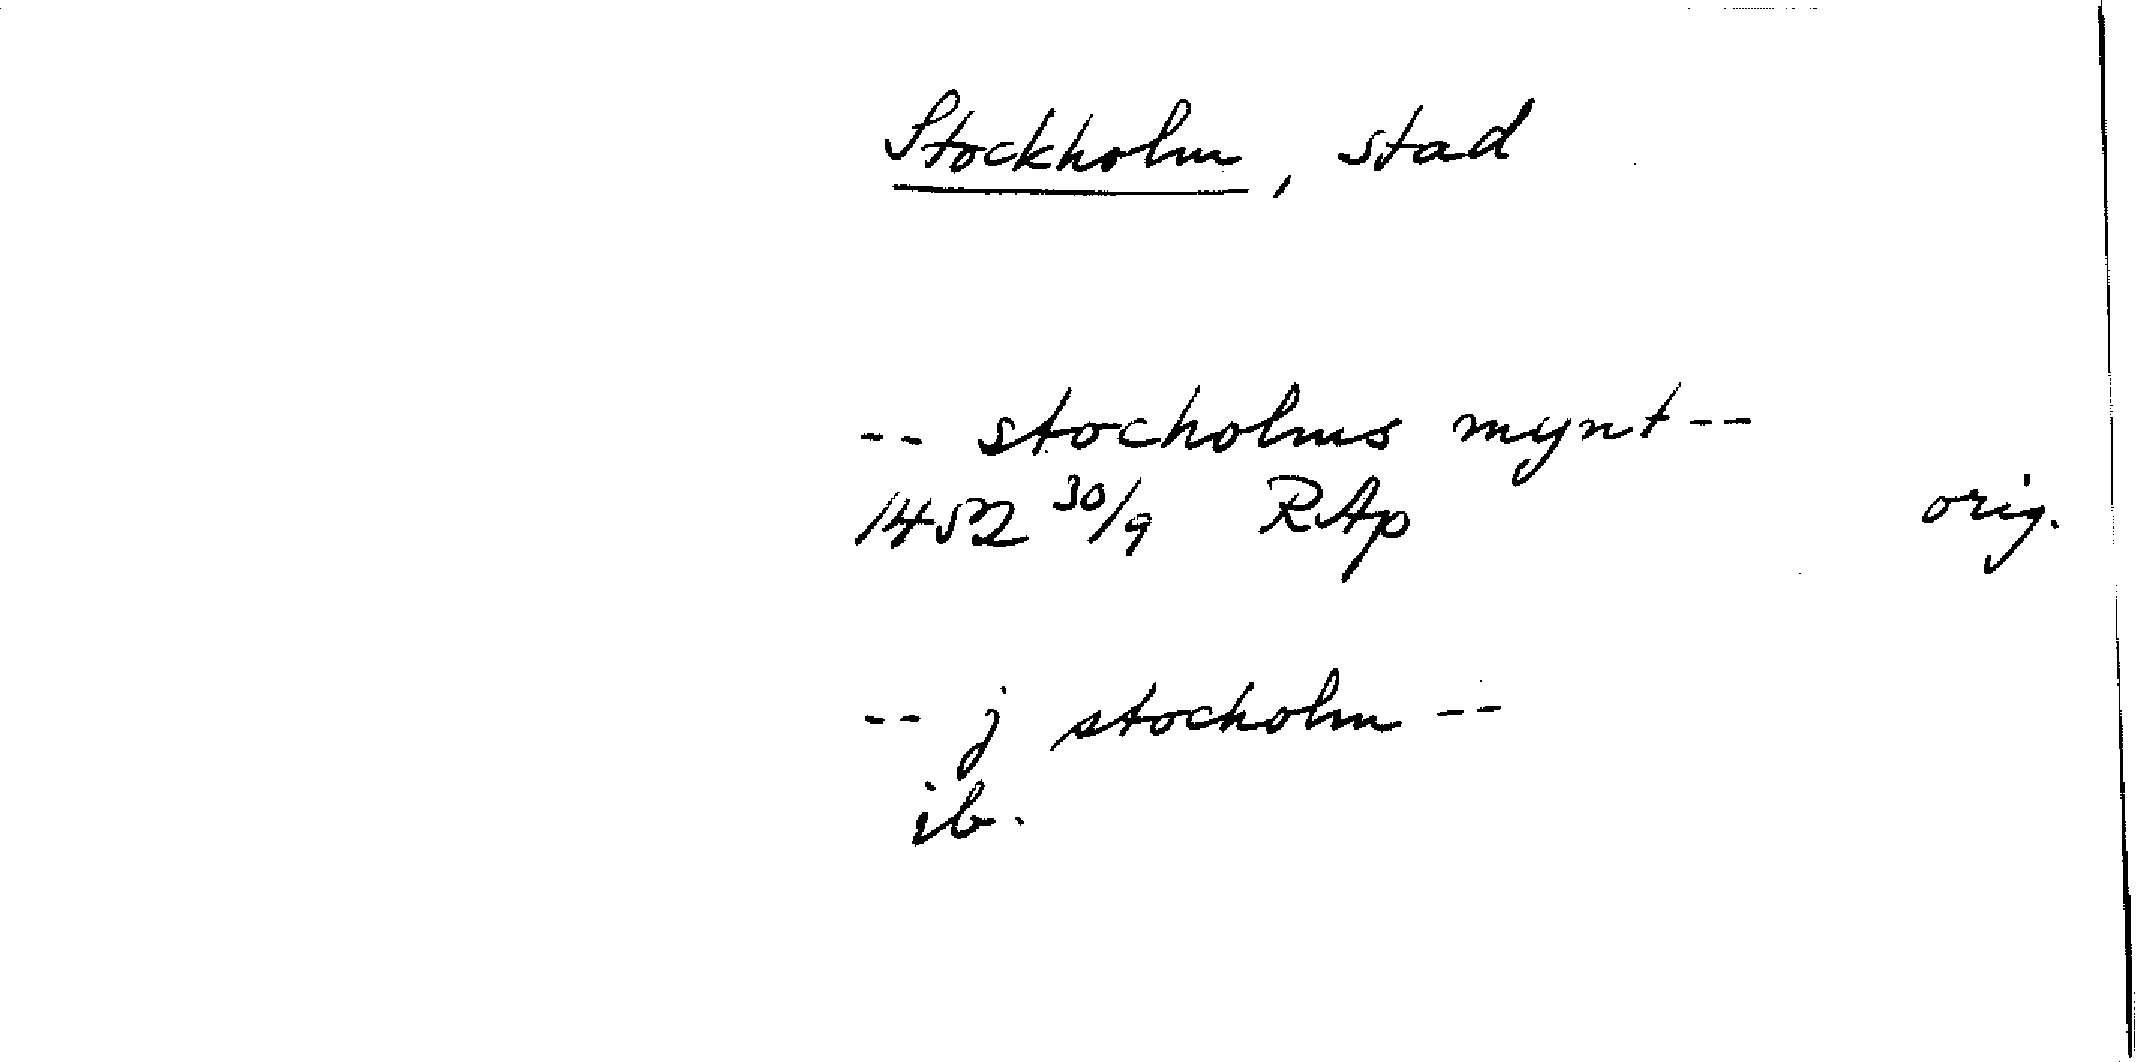 Stockholm, stad
-- stocholms mynt --
1452 30/9 RAp orig.
-- j stocholm --
ib.